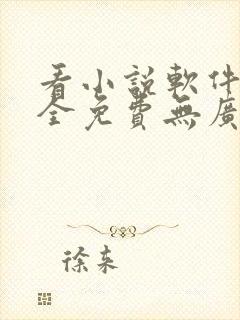 看小說軟件
全免費無廣
徐来